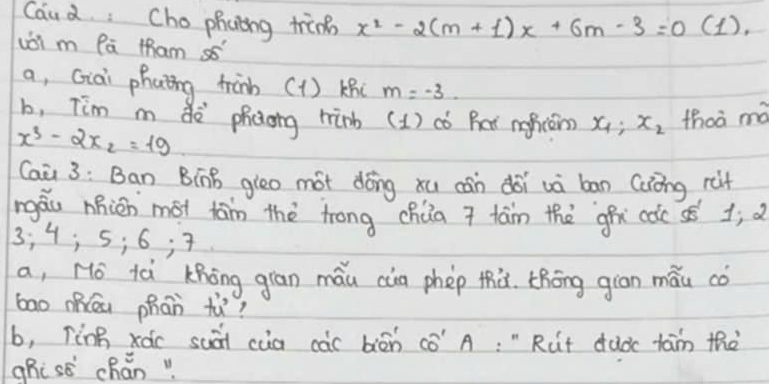 Câu 2 : Cho phương trình x² - 2(m + 1)x + 6m - 3 = 0 (1),
với m là tham số
a, Giải phương trình (1) khi m = -3.
b, Tìm m để phương trình (1) có hai nghiệm x₁ ; x₂ thoả mã
x³ - 2x₂ = 19
Câu 3 : Bạn Bình gieo một đồng xu cân đối và bạn Cường rút
ngẫu nhiên một tấm thẻ trong chứa 7 tấm thẻ ghi các số 1 ; 2
3 ; 4 ; 5 ; 6 ; 7
a, Mô tả không gian mẫu của phép thử. không gian mẫu có
bao nhiêu phần tử ?
b, Tính xác suất của các biến cố A : " Rút được tấm thẻ
ghi số chẵn ".